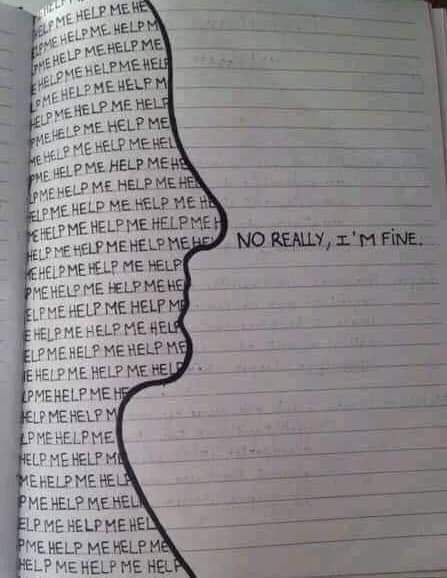 HELP
HELP ME HELP ME HE
LPME HELP ME HELP ME
PME HELP ME HELP ME
E HELP ME HELP ME HELP
LP ME HELP ME HELP M
HELP ME HELP ME HELP
ME HELP ME HELP ME
ME HELP ME HELP ME HEL
ME HELP ME HELP ME HE
LPME HELP ME HELP ME HEL
ELP ME HELP ME HELP ME HE
ME HELP ME HELP ME HELP ME H
HELP ME HELP ME HELP ME HEL NO REALLY, I'M FINE.
ME HELP ME HELP ME HELP
PME HELP ME HELP ME HE
ELP ME HELP ME HELP ME
HELP ME HELP ME HELP
ELP ME HELP ME HELP ME
E HELP ME HELP ME HELP
LPME HELP ME HE
ELP ME HELP M
LPME HELP ME
HELP ME HELP M
ME HELP ME HELP
PME HELP ME HEL
ELP ME HELP ME HEL
PME HELP ME HELP ME
HELP ME HELP ME HELP